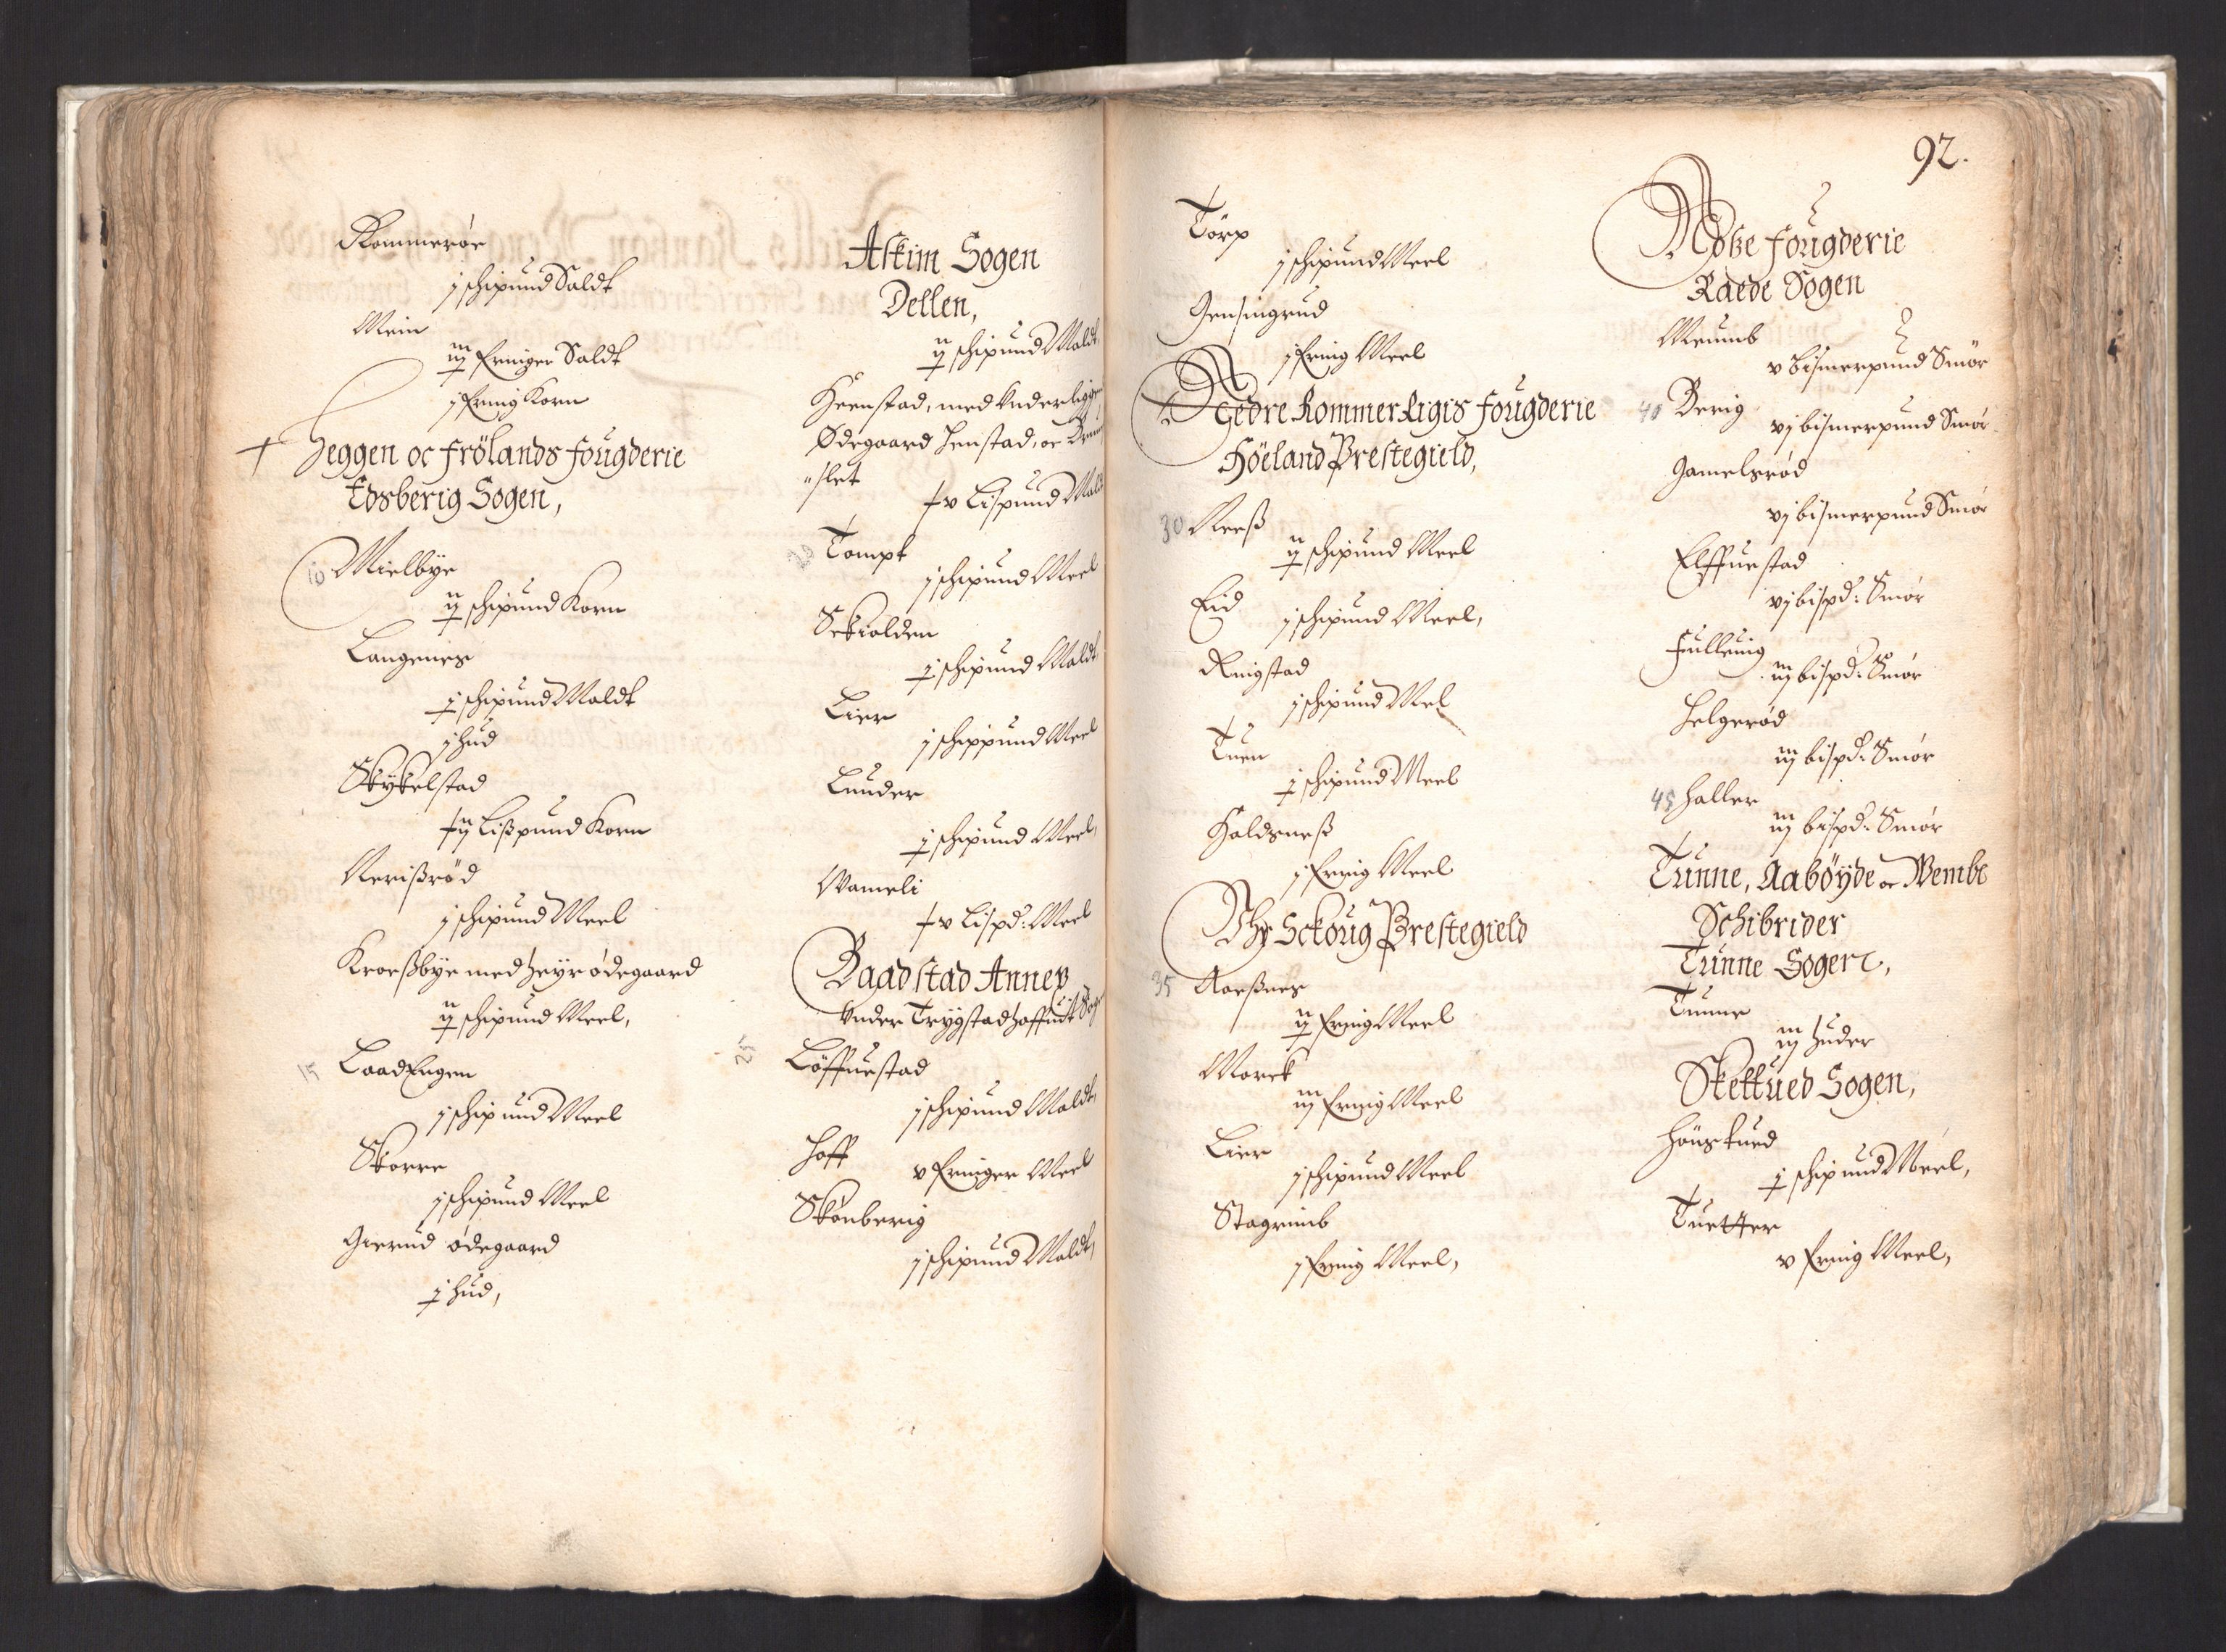 Rommerøe
j schipund Saldt
Mein
iij Frniger Saldt
j Frnig Korn
Heggen oc Frölands fougderie
Edsberig Sogen,
10 Mielbye
ij schipund Korn
Langenes
j schipund Maldt
j hud
Skÿkelstad
ij Lißpund Korn
Nerißröd
j schipund Meel
Kroeßbye med Heyr ødegaard
ij schipund Meel,
15 LaadEngen
j schipund Meel
Skorre
j schipund Meel
Gierud ødegaard
j hud,
Askim Sogen
Dellen,
ij schipund Maldt
Heenstad, med Underligge
Ødegaard Henstad, oc
slet
v Lispund Maldt
20 Tompt
j schipund Meel
Sekiolden
j schipund Maldt
Lier
j schippund Meel
Lunder
j schipund Meel,
Wameli
v Lispd: Meel
Baadstad Annex
Under Trygstad Hoffuit Sog
25 Löffuestad
j schipund Maldt,
Hoff
v Frniger Meel
Skönberig
j schipund Maldt,
92.
Törp
j schipund Meel
Gensingrud
j Frnig Meel
Nedre Rommerligis fougderie
Höeland Prestegield,
30 Neeß
ij schipund Meel
Eid
j schipund Meel,
Ringstad
j schipund Mel
Tuen
j schipund Meel
Haldsneß
j Frnig Meel
Uhr Sckoug Prestegield
35 Aaeßnes
ij Frnig Meel
Morck
iij Frnig Meel
Lier
j schipund Meel
Stagrimb
j Frnig Meel,
Moße fougderie
Raede Sogen
Meumb
v bismerpund Smör
40 Berig
vj bismerpund Smör
Gamelsröd
vj bismerpund Smör
Elffuestad
vj bispd: Smör
Fulleuig
iij bispd: Smör
Helgeröd
iij bispd: Smör
45 Haller
iij bispd: Smör
Tunne, Aabøyde oc Wembe
Schibrider
Tunne Sogen,
Tunne
iij Huder
Skettued Sogen,
Hönstued
j schipund Meel,
Tuetter
v Frnig Meel,